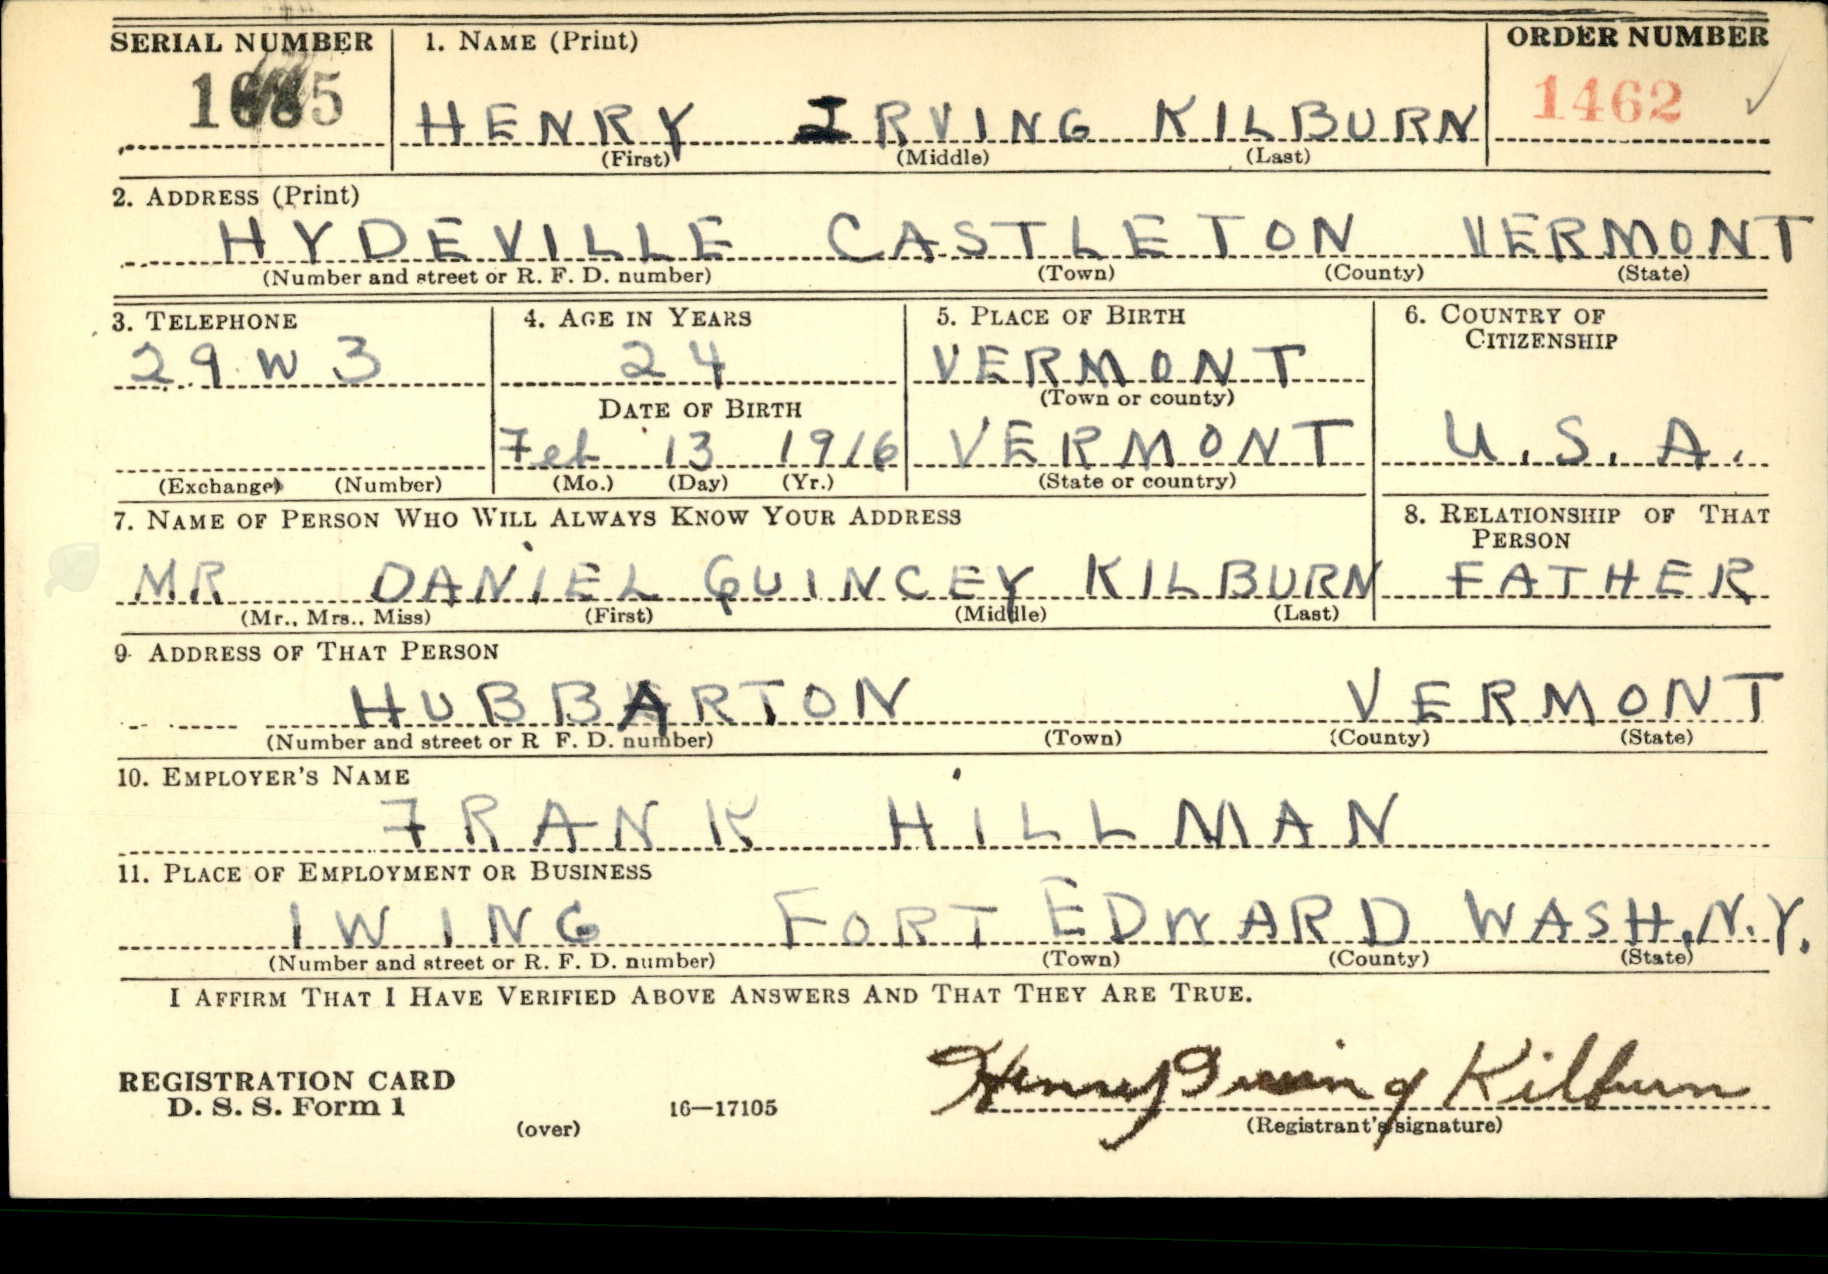 SERIAL NUMBER
1. NAME (Print)
ORDER NUMBER
1462
HENRY IRVING KILBURN
(First) (Middle) (Last)
2. ADDRESS (Print)
HYDEVILLE CASTLETON VERMONT
(Number and street or R. F. D. number) (Town) (County) (State)
3. TELEPHONE
4. AGE IN YEARS
5. PLACE OF BIRTH
6. COUNTRY OF
CITIZENSHIP
29 W 3
24
VERMONT
(Town or county)
DATE OF BIRTH
Feb 13 1916
VERMONT
U.S.A.
(Exchange) (Number)
(Mo.) (Day) (Yr.)
(State or country)
7. NAME OF PERSON WHO WILL ALWAYS KNOW YOUR ADDRESS
8. RELATIONSHIP OF THAT
PERSON
MR DANIEL QUINCEY KILBURN
FATHER
(Mr., Mrs., Miss) (First) (Middle) (Last)
9. ADDRESS OF THAT PERSON
HUBBARTON VERMONT
(Number and street or R F. D. number) (Town) (County) (State)
10. EMPLOYER'S NAME
FRANK HILLMAN
11. PLACE OF EMPLOYMENT OR BUSINESS
IWING FORT EDWARD WASH, N.Y.
(Number and street or R. F. D. number) (Town) (County) (State)
I AFFIRM THAT I HAVE VERIFIED ABOVE ANSWERS AND THAT THEY ARE TRUE.
Henry Irving Kilburn
REGISTRATION CARD
D. S. S. Form 1
16—17105
(over)
(Registrant's signature)